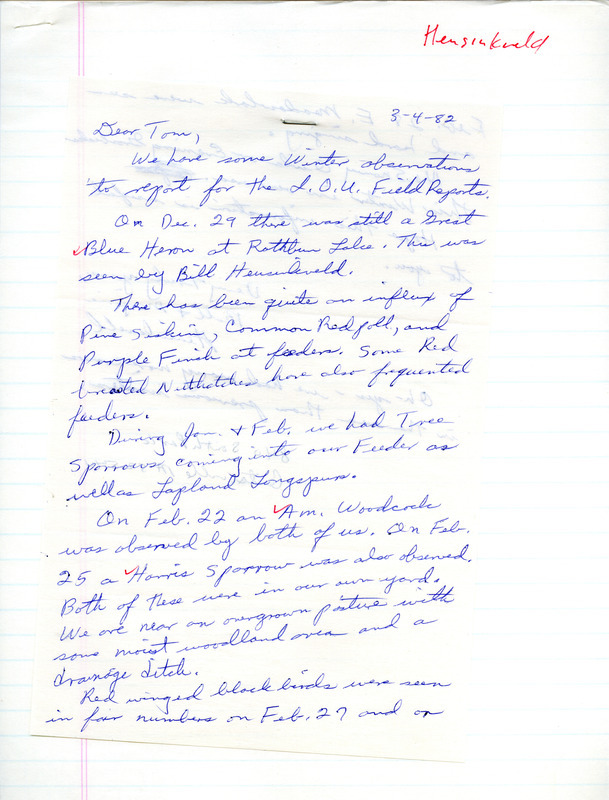 Hensinkveld
3-4-82
Dear Tom,
We have some Winter observations
to report for the I.O.U. Field Reports.
On Dec. 29 there was still a Great
Blue Heron at Rathbun Lake. This was
seen by Bill Heusinkveld.
There has been quite an influx of
Pine Siskin, Common Redpoll, and
Purple Finch at feeders. Some Red
breasted Nuthatches have also frequented
feeders.
During Jan. & Feb. we had Tree
Sparrows coming into our Feeder as
well as Lapland Longspurs.
On Feb. 22 an Am. Woodcock
was observed by both of us. On Feb.
25 a Harris Sparrow was also observed.
Both of these were in our own yard.
We are near an overgrown pasture with
some moist woodland area and a
drainage ditch.
Red winged blackbirds were seen
in fair numbers on Feb. 27 and on